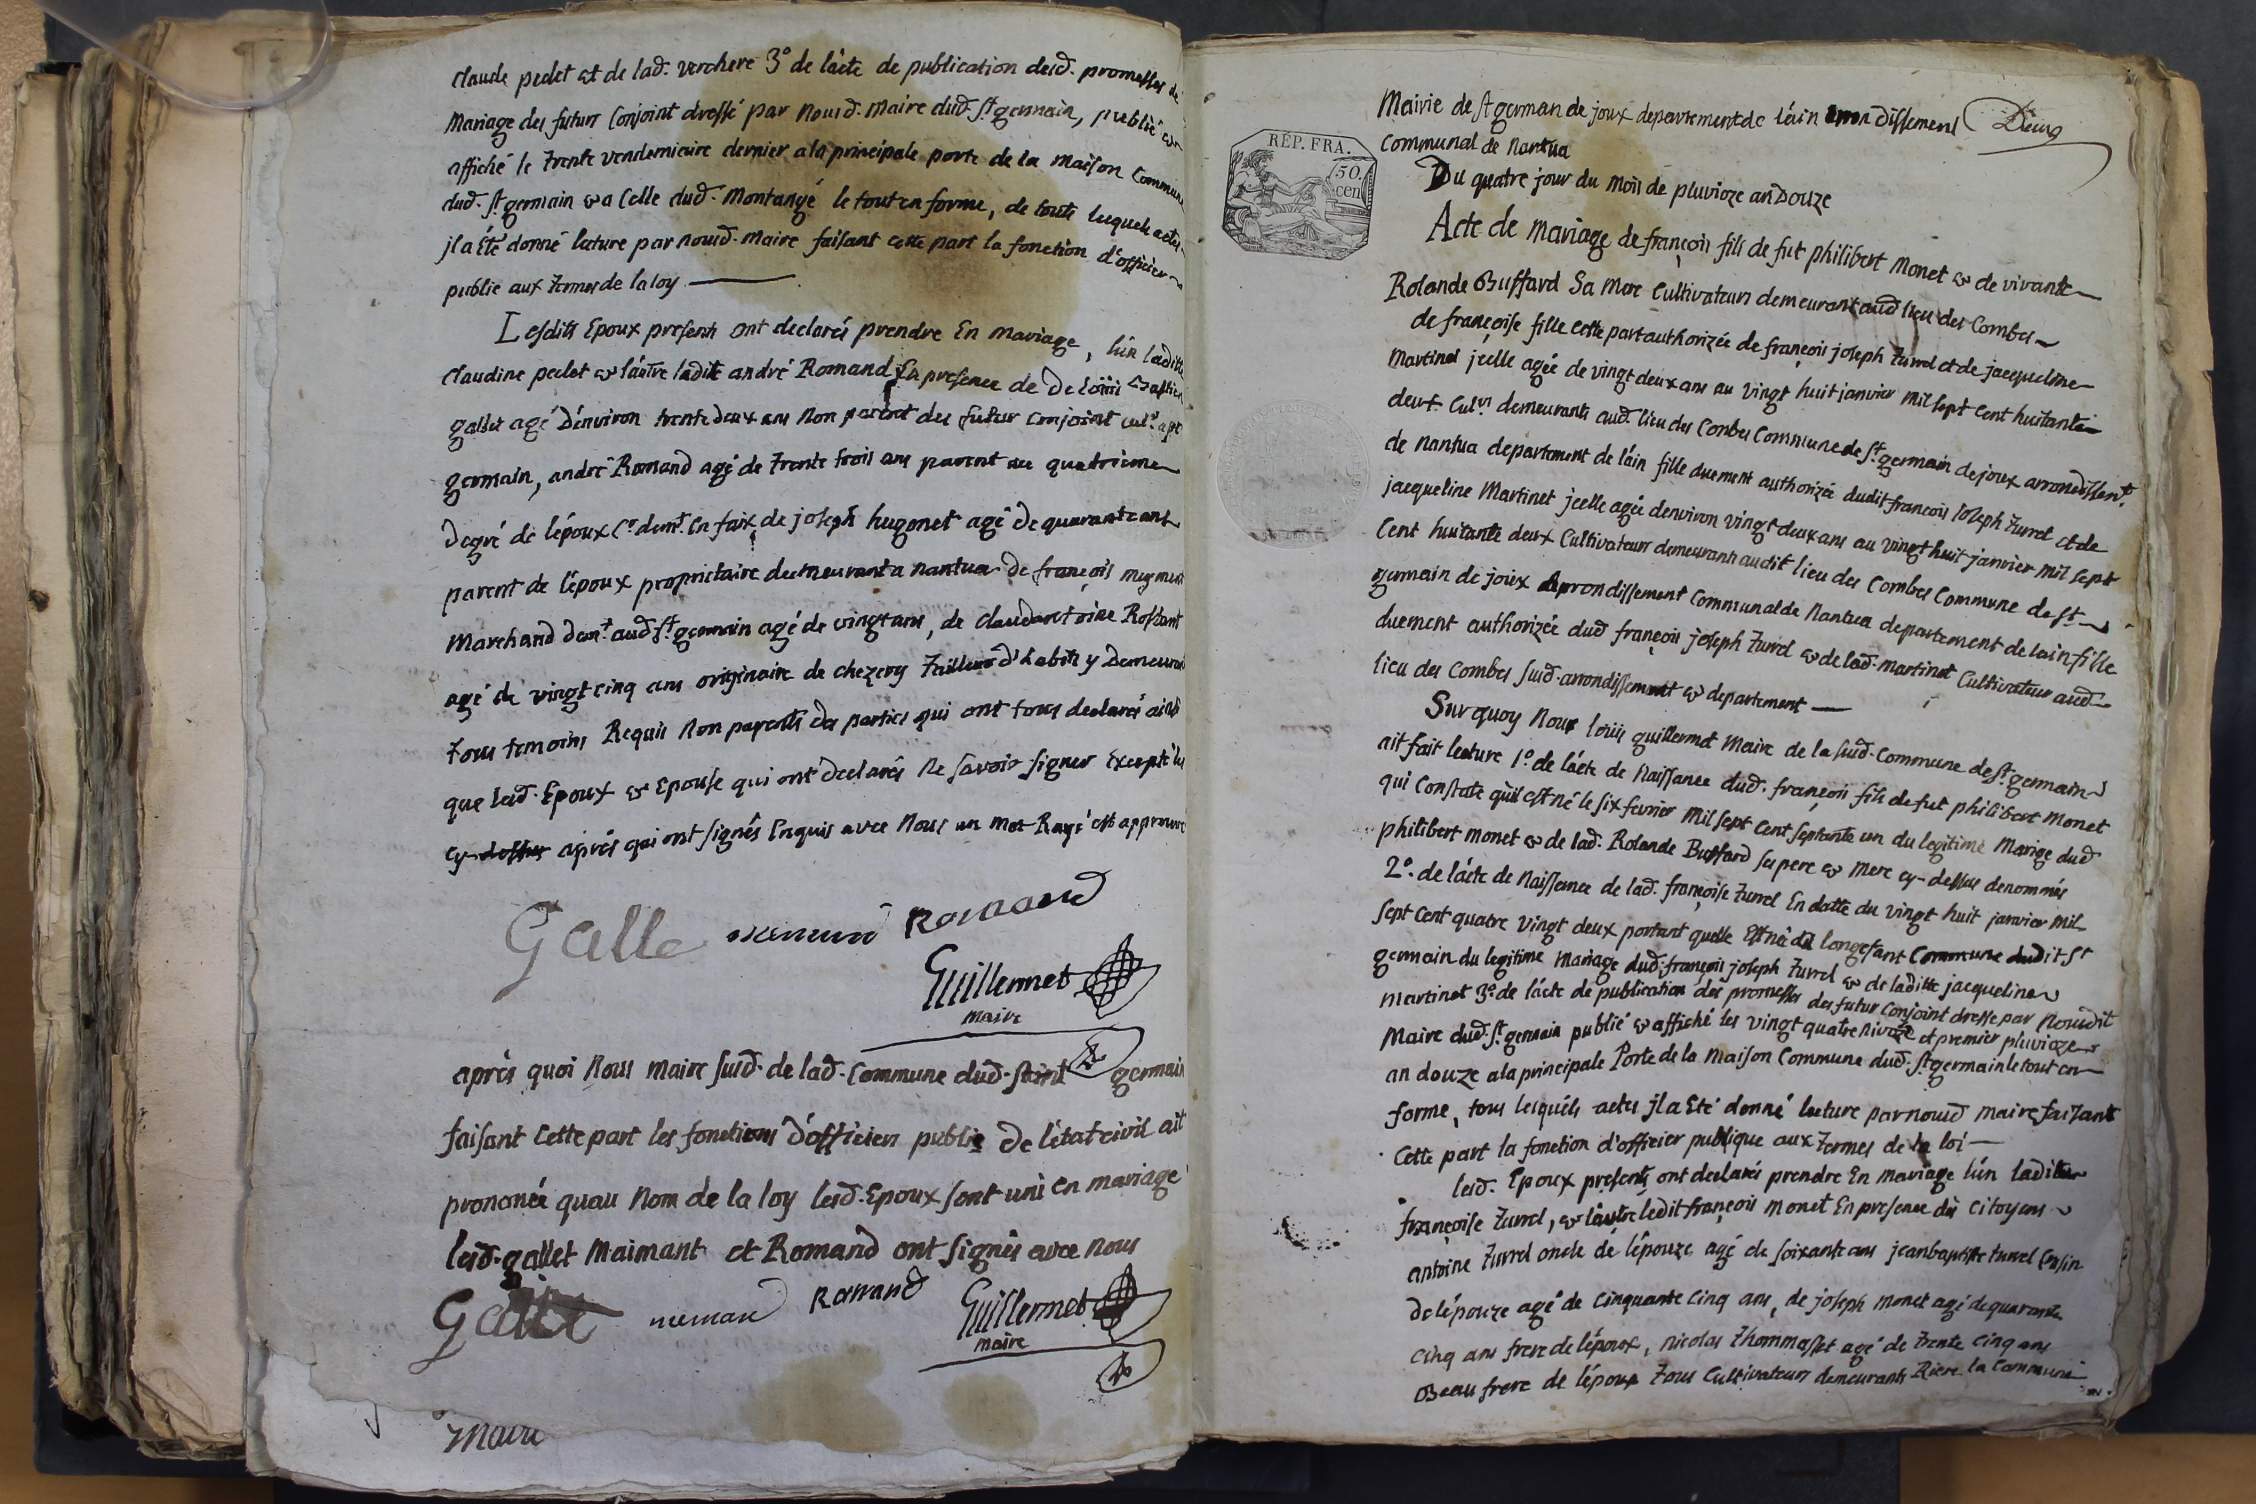 claude pedet et de lad. verchere 3° de lácte de publication desd. promesses de
Mariage des futurs Conjoint dressé par Nousd. Maire dud. St germain, publié et
affiché le trente vendemiaire dernier ala principale porte de la Maison Commune
dud. St germain et a Celle dud. Montangé le tout en forme, de touts lesquels actes
jl a Été donné lecture par nousd. Maire faisant cette part la fonction d'officier
publie aux termes de la loy
Lesdits Epoux presents ont declarés prendre En mariage, lún laditte
claudine pedet et láutre ledit andré Romand En presence de De Loüis
gallet agé d'énviron trente deux ans Non parent des futur conjoint
germain, andré Romand agé de trente trois ans parent au quatrieme
degré de lépoux Ce demt. En faix, de joseph hugonet agé de quarante ans
parent de lépoux proprietaire demeurant a nantua de françois
Marchand demt. aud. St germain agé de vingt ans, de claudantoine Rostant
agé de vingt cinq ans originaire de chezery tailleur d'habits y Demeurant
tous temoins Requis Non parents des parties qui ont tous declarés ainsi
que lesd. Epoux et Epouse qui ont declarés Ne savoir signer Excepté les
cy-dessus aprés qui ont signés Enquis avec Nous un mot Rayé est approuvé
Galle Romand
Guillermet
maire
aprés quoi Nous maire susd. de lad. Commune dud. saint germain
faisant Cette part les fonctions d'officier public De létat civil ait
prononcé quau Nom de la loy lesd. Epoux sont uni en mariage
lesd. gallet Maimant et Romand ont signés avec nous
Galle Romand Guillermet
maire
Maire
Mairie de St german de joux departement de léain arrondissement
Communal de Nantua
RÉP. FRA.
50.
cen
Du quatre jour du Mois de pluvioze an Douze
Acte de Mariage de françois fils de fut philibert Monet et de vivante
Rolande Buffard Sa Mere Cultivateurs demeurant aud. lieu des Combes
de françoise fille cette part authorizée de françois joseph turrel et de jacqueline
Martinet jcelle agée de vingt deux ans au vingt huit janvier mil sept Cent huitante
deux Culrs demeurants aud. lieu des Combes Commune de St. germain de joux arrondissent.
de nantua departement de láin fille duement authorizée dudit françois Joseph turrel et de
jacqueline Martinet jcelle agée denviron vingt deux ans au vingt huit janvier mil sept
Cent huitante deux Cultivateurs demeurants audit lieu des Combes Commune de St.
germain de joux Arrondissement Communal de Nantua departement de lain fille
duement authorizée dud. françois joseph turrel et de lad. martinet Cultivateur aud.
lieu des Combes susd. arrondissement et departement
Sur quoy Nous loüis guillermet Maire de la susd. Commune de St. germain
ait fait lecture 1°. de lácte de Naissance dud. françois fils de fut philibert Monet
qui Constate qúil est né le six fevrier Mil sept cent septante un du legitime Marige dud.
philibert monet et de lad. Rolande Buffard ses pere et mere cy-dessus denommés
2°. de lácte de Naissance de lad. françoise turrel En datte du vingt huit janvier mil
sept cent quatre vingt deux portant quelle Est née à longefant Commune dudit St
germain du legitime Mariage dud. françois joseph turrel et de laditte jacqueline
martinet 3°. de lácte de publication des promesses des futur Conjoint dresse par Nousdit
Maire dud. St. germain publié et affiché les vingt quatre nivoze et premier pluvioze
an douze ala principale Porte de la Maison Commune dud. St. germain le tout en
forme, tous lesquéls actes jl a Eté donné lecture par nousd. maire faizant
Cette part la fonction d'officier publique aux termes de la loi
lesd. Epoux presents ont declarés prendre En mariage lún laditte
françoise turrel, et láutre ledit françois monet En presence des Citoyens
antoine turrel oncle de lépouze agé de soixante ans jean baptiste turrel Cosin
de lépouze agé de Cinquante Cinq ans, de joseph monet agé de quarante
cinq ans frere de lépoux, nicolas thommasset agé de trente cinq ans
Beau frere de lépoux tous Cultivateurs demeurants Riere la Commune